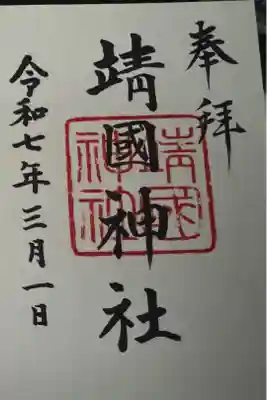 奉拝
靖國神社
令和七年三月一日
靖国
神社